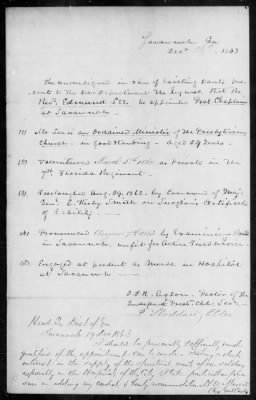 Savannah, Ga
Decr 1863
The undersigned in view of existing wants present
to the War Department the request that the
Revd. Edmund Lee be appointed Post Chaplain
at Savannah.
(1) Mr Lee is an Ordained Minister of the Presbyterian
Church - in good standing - aged 39 years.
(2) Volunteered March 1862 as Private in the
7th Florida Regiment.
(3) Furloughed Aug. 1862. by Command of Maj.
Genl. E. Kirby Smith on Surgeon's Certificate
of debility.
(4) Pronounced 1863 by Examining Board
in Savannah, unfit for Active Field service.
(5) Engaged at present as Nurse in Hospital
at Savannah
I.S.K. Axson, Pastor of the
Independ Presb. Ch. Sav.
J. Stoddard, Elder
Head Qrs Dist of Ga
Savannah 19 Dec 1863
I should be personally & officially much
gratified if the appointment can be made
interest in the supply of the spiritual wants of our soldiers
especially in the Hospitals of this City
in adding my cordial & hearty recommendation